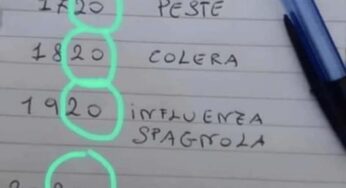 1720 PESTE
1820 COLERA
1920 INFLUENZA
SPAGNOLA